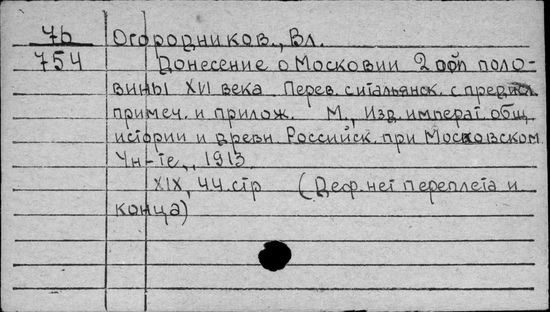 7b Огородников, Вл.
754 Донесение о Московии 2 ой поло-
вины XVI века Перев. с итальянск. с предисл.
примеч. и прилож. М., Изд. императ. общ.
истории и древн. Российск. при Московском
Ун-те, 1913
XIX, 44 стр (Деф. нет переплета и
конца)